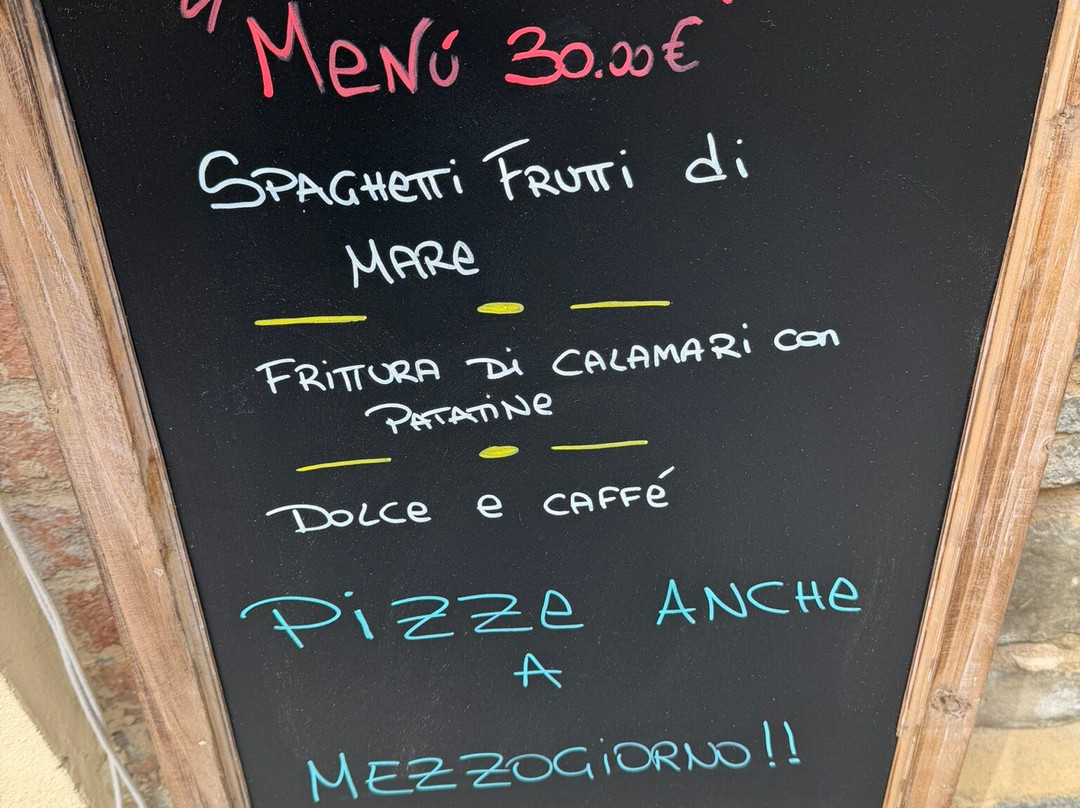 Menú 30.00€
Spaghetti Frutti di
Mare
Frittura di calamari con
patatine
Dolce e caffé
Pizze anche
a
mezzogiorno!!